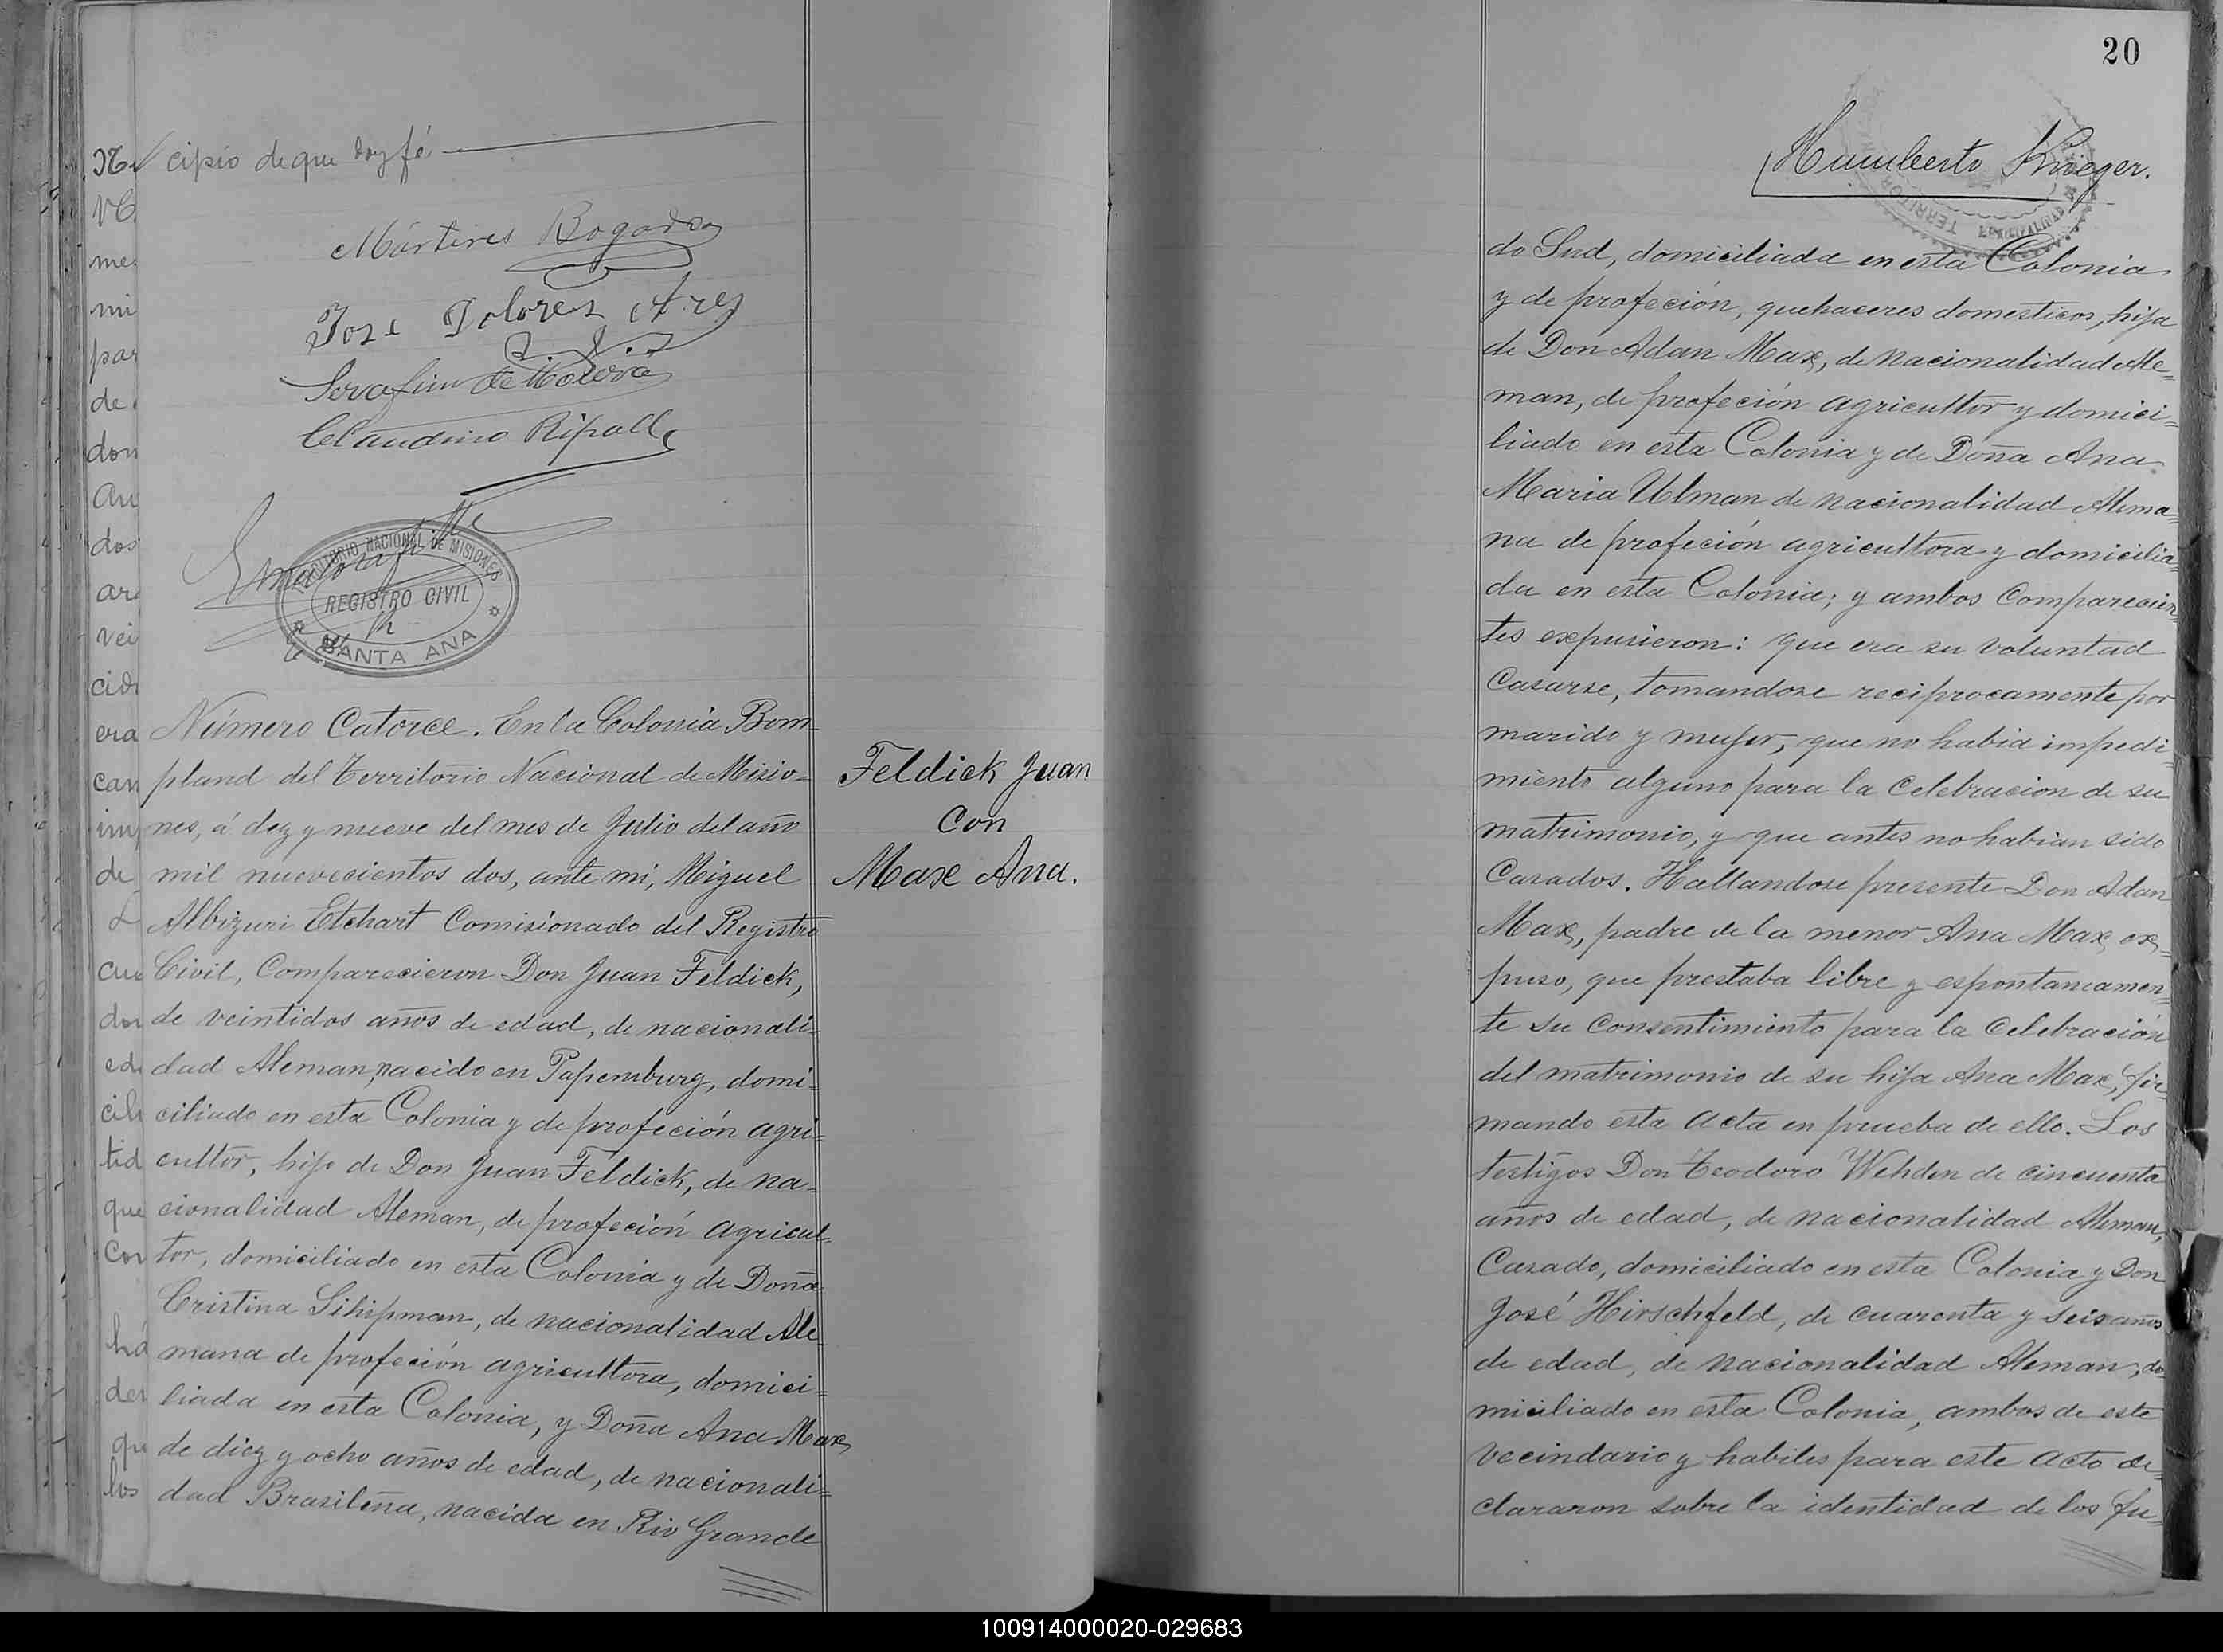 cipio de que doy fé
Mártires Bogarda
José Dolores Ares
Serafim de Moura
Claudino Ripoll
TERRITORIO NACIONAL DE MISIONES
REGISTRO CIVIL
SANTA ANA
Número Catorce. En la Colonia Bom-
pland del Territorio Nacional de Misio=
nes, á diez y nueve del mes de Julio del año
mil nuevecientos dos, ante mi, Miguel
Albizuri Etchart Comisionado del Registro
Civil, Comparecieron Don Juan Feldick,
de veintidos años de edad, de nacionali=
dad Aleman, nacido en Papemburg, domi=
ciliado en esta Colonia y de profeción agri=
cultor, hijo de Don Juan Feldick, de na=
cionalidad Aleman, de profeción agricul=
tor, domiciliado en esta Colonia y de Doña
Cristina Sihipman, de nacionalidad Ale
mana de profeción agricultora, domici=
liada en esta Colonia, y Doña Ana Max,
de diez y ocho años de edad, de nacionali=
dad Brasileña, nacida en Rio Grande
Feldick Juan
Con
Max Ana.
20
Humberto Krieger.
do Sud, domiciliada en esta Colonia
y de profeción, quehaceres domesticos, hija
de Don Adan Max, de nacionalidad Ale=
man, de profeción agricultor y domici=
liado en esta Colonia y de Doña Ana
Maria Ulman de nacionalidad Alema=
na de profeción agricultora y domicilia=
da en esta Colonia; y ambos Comparecien=
tes expusieron: que era su voluntad
Casarse, tomandose reciprocamente por
marido y mujer, que no habia impedi=
miento alguno para la Celebracion de su
matrimonio, y que antes no habian sido
Casados. Hallandose presente Don Adan
Max, padre de la menor Ana Max, ex=
puso, que prestaba libre y espontaneamen=
te su Consentimiento para la Celebración
del matrimonio de su hija Ana Max, fir=
mando esta acta en prueba de ello. Los
testigos Don Teodoro Wehden de cincuenta
años de edad, de nacionalidad Aleman,
Casado, domiciliado en esta Colonia y Don
José Hirschfeld, de cuarenta y seis años
de edad, de nacionalidad Aleman, do
miciliado en esta Colonia, ambos de este
vecindario y habiles para este acto de=
clararon sobre la identidad de los fu=
100914000020-029683